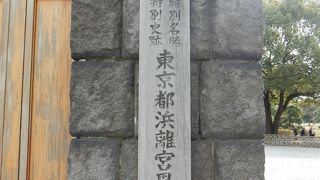 特別名勝
特別史跡
東京都浜離宮恩